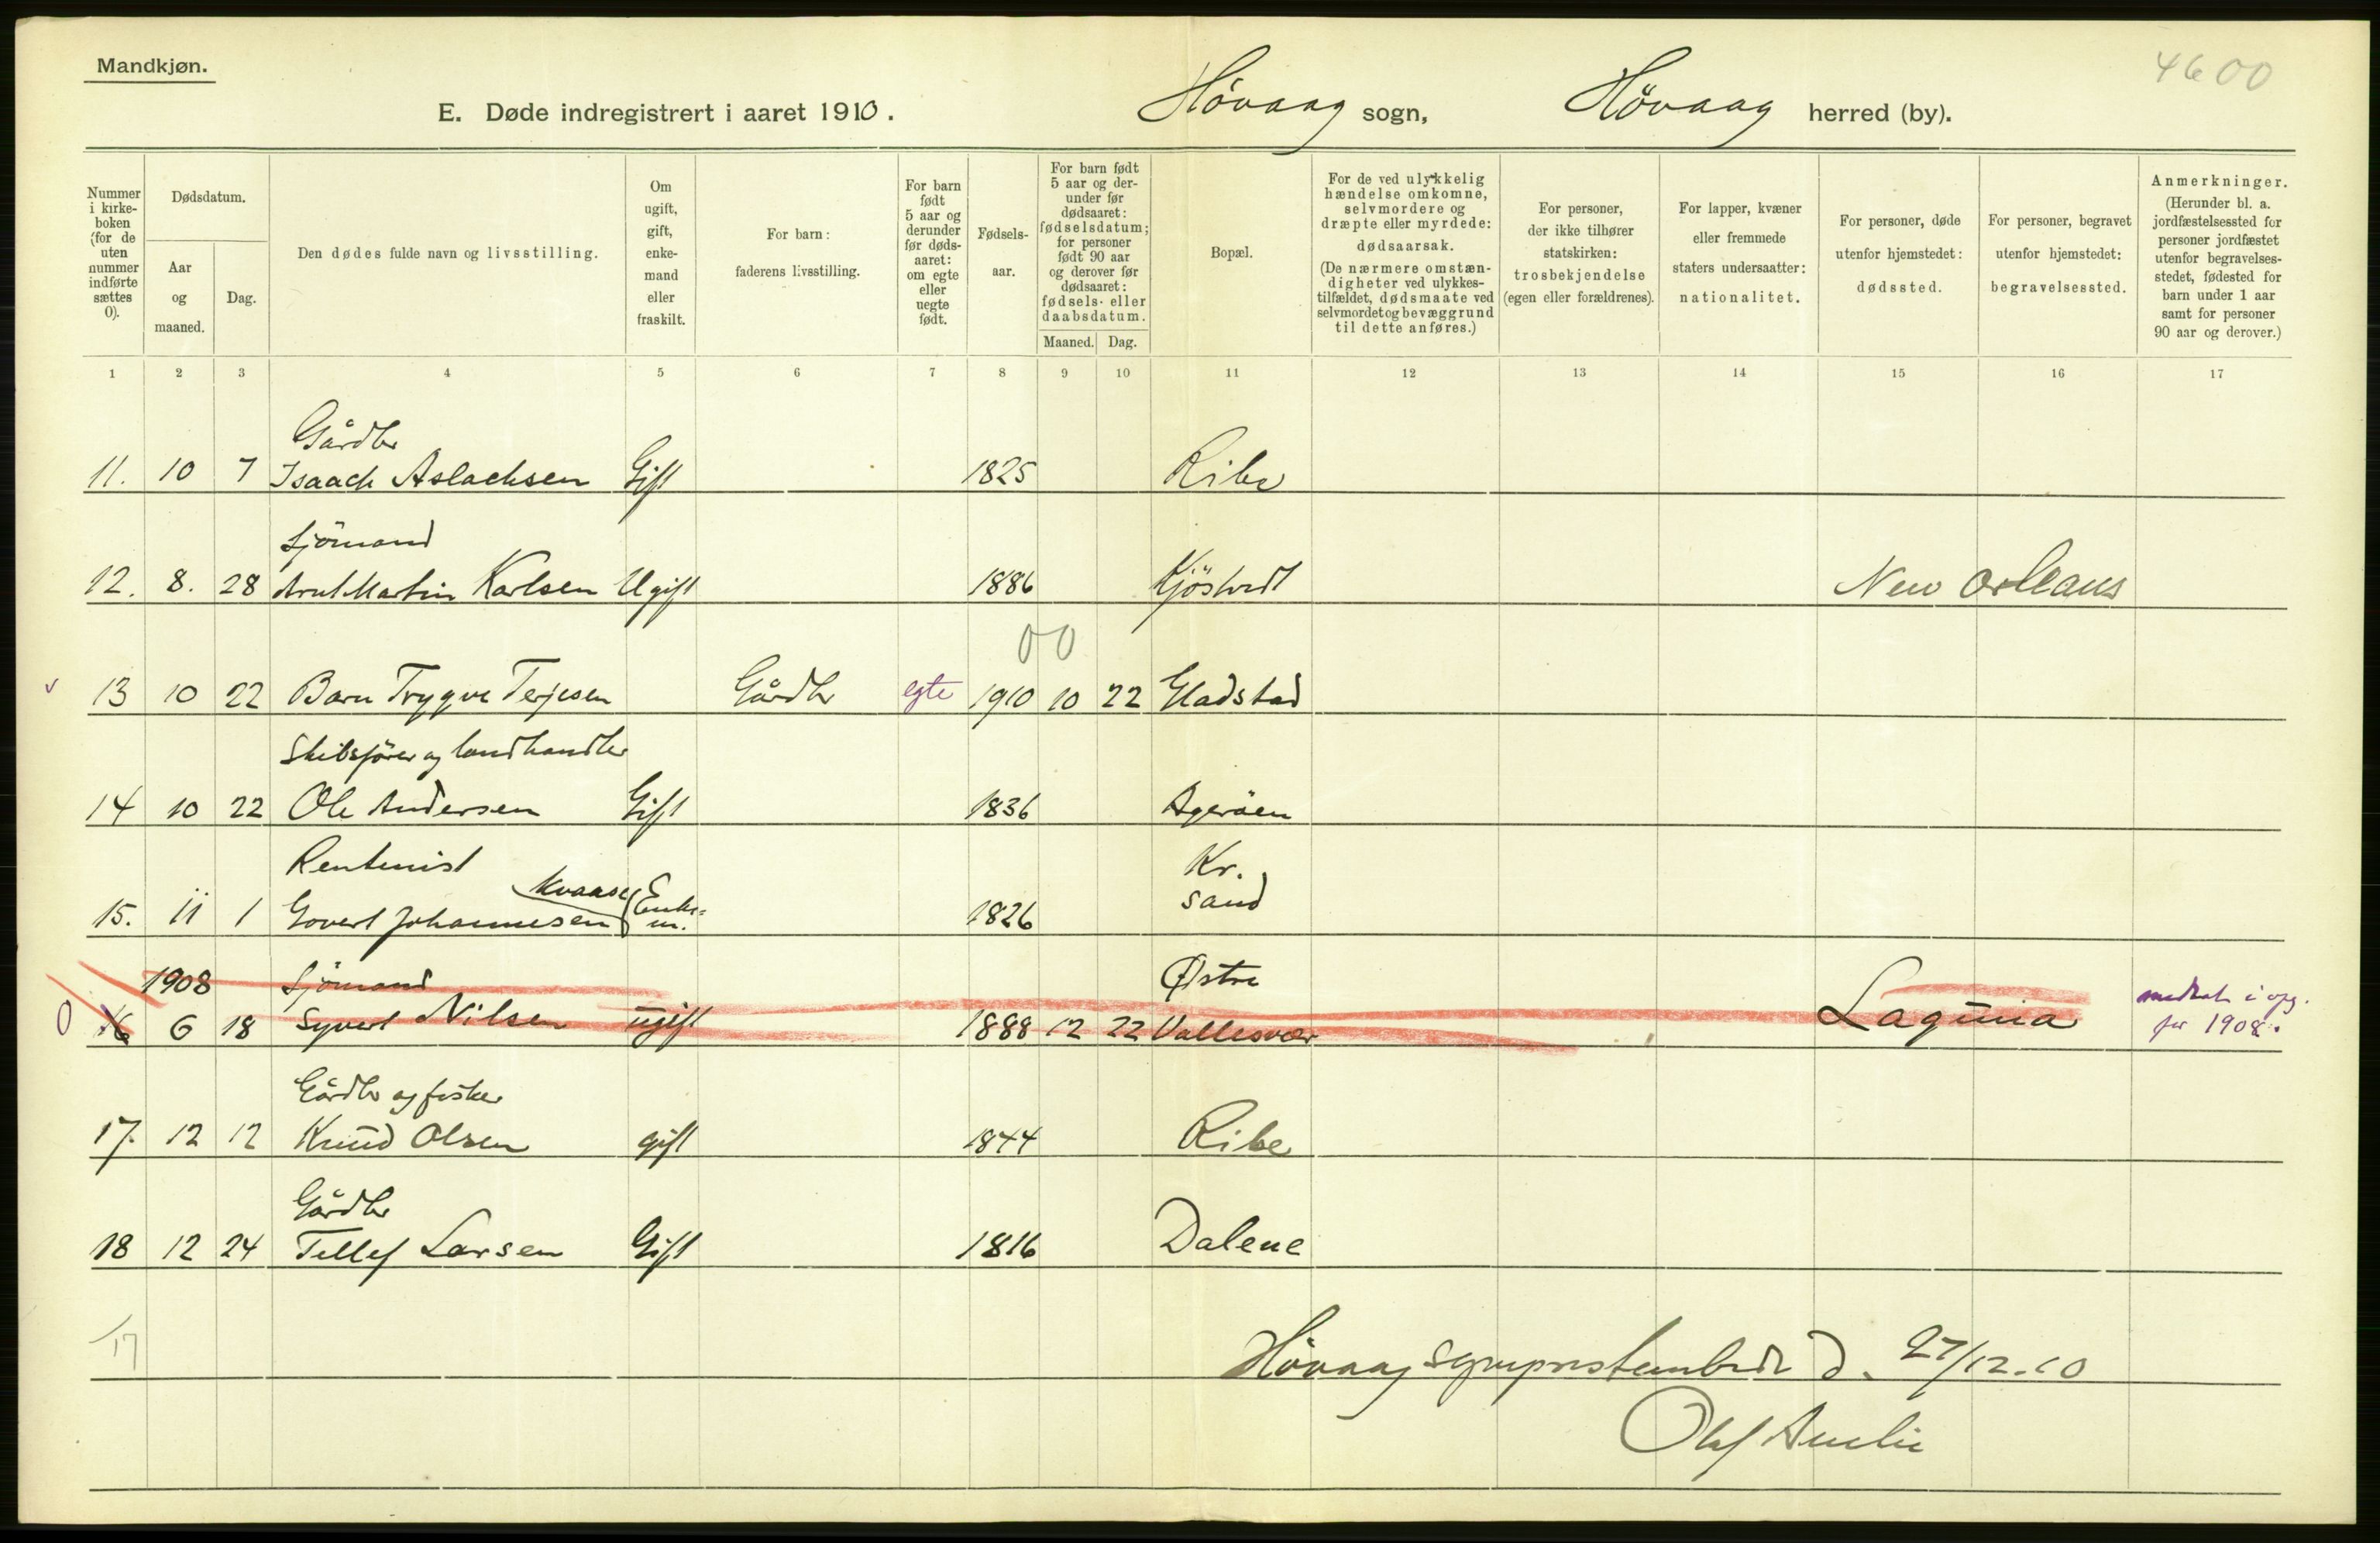 Mandkjøn.
4600
E. Døde indregistrert i aaret 1910. Høvaag sogn, Høvaag herred (by).
Nummer i kirke- boken (for de uten nummer indførte sættes 0).
Dødsdatum.
Aar og maaned.
Dag.
Den dødes fulde navn og livsstilling.
Om ugift, gift, enke- mand eller fraskilt.
For barn: faderens livsstilling.
For barn født 5 aar og derunder før døds- aaret: om egte eller uegte født.
Fødsels- aar.
For barn født 5 aar og der- under før dødsaaret: fødselsdatum; for personer født 90 aar og derover før dødsaaret: fødsels- eller daabsdatum.
Maaned. Dag.
Bopæl.
For de ved ulykkelig hændelse omkomne, selvmordere og dræpte eller myrdede: dødsaarsak. (De nærmere omstæn- digheter ved ulykkes- tilfældet, dødsmaate ved selvmordet og bevæggrund til dette anføres.)
For personer, der ikke tilhører statskirken: trosbekjendelse (egen eller forældrenes).
For lapper, kvæner eller fremmede staters undersaatter: nationalitet.
For personer, døde utenfor hjemstedet: dødssted.
For personer, begravet utenfor hjemstedet: begravelsessted.
Anmerkninger. (Herunder bl. a. jordfæstelsessted for personer jordfæstet utenfor begravelses- stedet, fødested for barn under 1 aar samt for personer 90 aar og derover.)
1 2 3 4 5 6 7 8 9 10 11 12 13 14 15 16 17
Gårdbr
11. 10 7 Isaach Aslachsen Gift 1825 Ribe
Sjömand
12. 8. 28 Arnt Martin Karlsen Ugift 1886 Kjöstvedt New Orleans
00
v 13 10 22 Barn Trygve Terjesen Gårdbr egte 1910 10 22 Gladstad
Skibsförer og landhandler
14 10 22 Ole Andersen Gift 1836 Ageröen
Rentenist Kr.
Kvaase
15. 11 1 Govert Johannesen Enke= m. 1826 sand
1908 Sjömand Østre
0 16 6 18 Syvert Nilsen ugift 1888 12 22 Vallesvær Laguia medtat i opg. for 1908.
Gårdbr og fisker
17. 12 12 Knud Olsen gift 1844 Ribe
Gårdbr
18 12 24 Tellef Larsen Gift 1816 Dalene
17
Høvaag sogneprestembede d. 27/12.10
Olaf